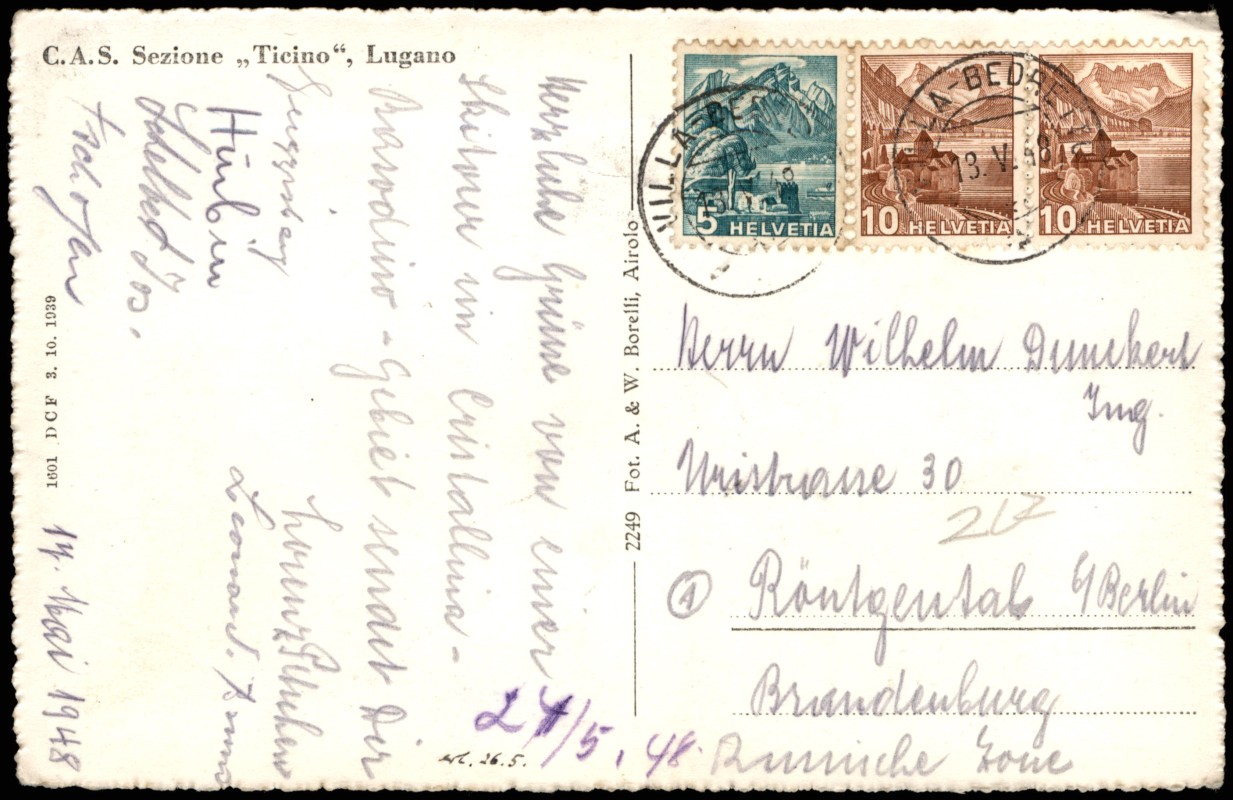 C.A.S. Sezione „Ticino“, Lugano
Herzliche Grüsse von einer
Skitour im Cristallina-
Basodino-Gebiet sendet Dir
Lorenz
Leonard.
Hürbin
Jos.
17. Mai 1948
1601 DCF 3. 10. 1939
2249 Fot. A. & W. Borelli, Airolo
5 HELVETIA
10 HELVETIA
10 HELVETIA
VILLA-BEDRETTO
13. V. 48
Herrn Wilhelm Dunekert
Ing.
Uristrasse 30
217
1 Röntgental b/Berlin
Brandenburg
Russische Zone
24/5. 48.
erl. 26.5.